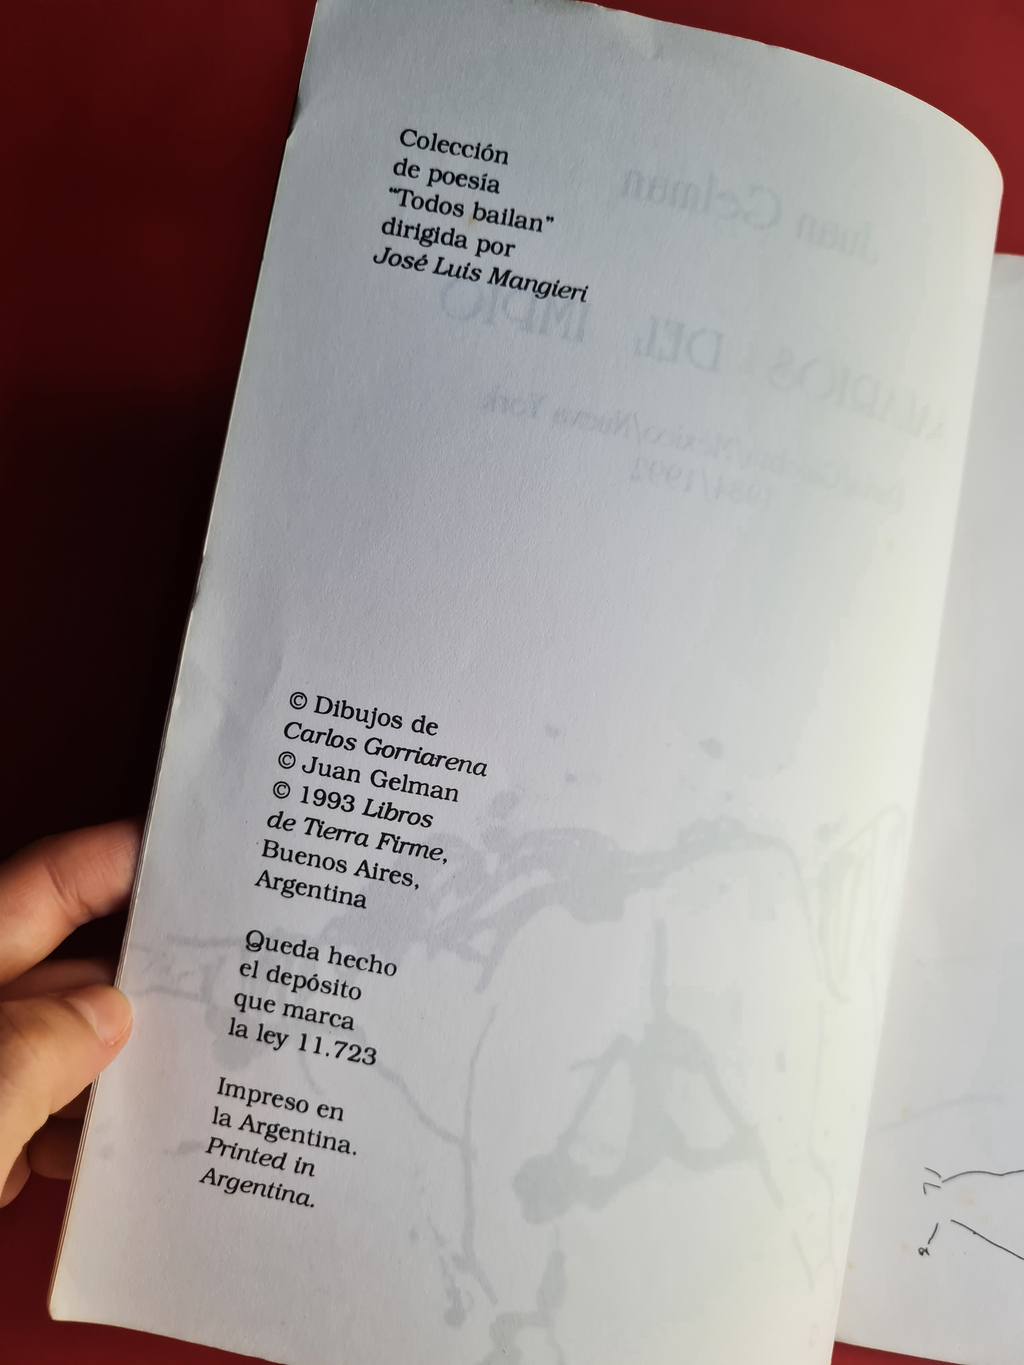 Colección
de poesía
“Todos bailan”
dirigida por
José Luis Mangieri
Juan Gelman
SALARIOS DEL IMPIO
1984/1992
© Dibujos de
Carlos Gorriarena
© Juan Gelman
© 1993 Libros
de Tierra Firme,
Buenos Aires,
Argentina
Queda hecho
el depósito
que marca
la ley 11.723
Impreso en
la Argentina.
Printed in
Argentina.